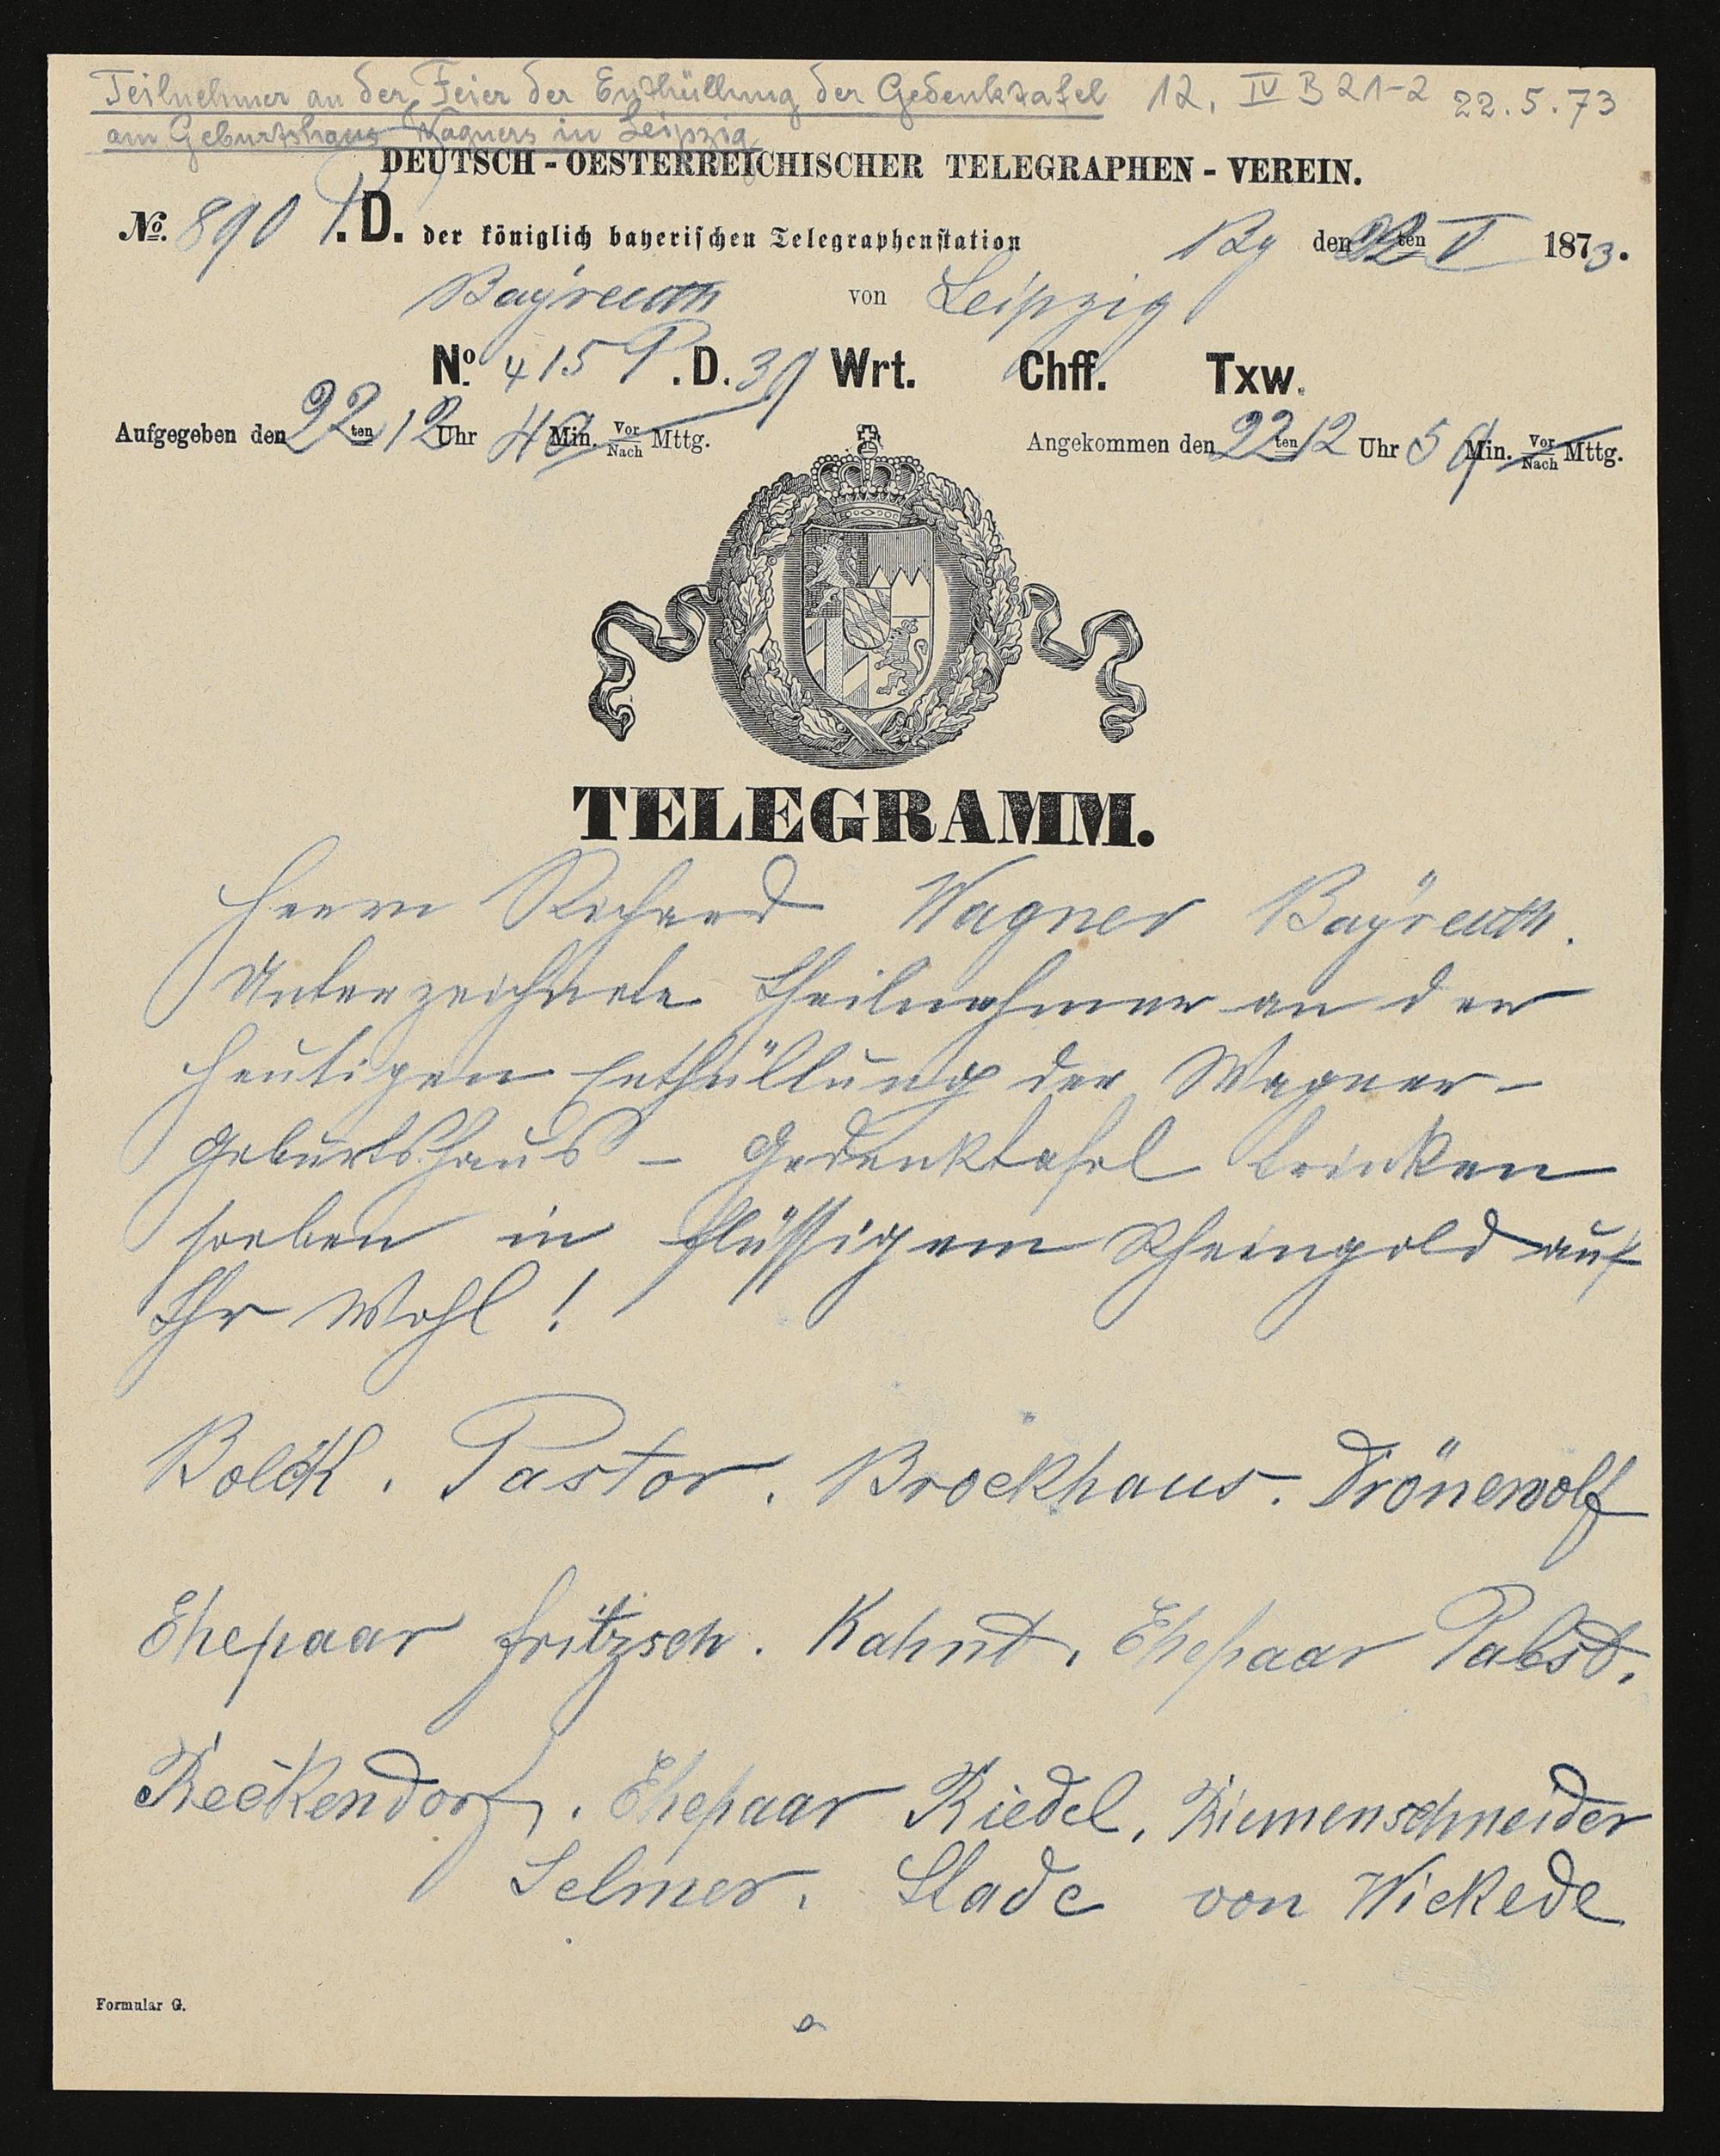 Teilnehmer an der Feier der Enthüllung der Gedenktafel 12. IV B 21-2 22.5.73
am Geburtshaus Wagners in Leipzig
DEUTSCH - OESTERREICHISCHER TELEGRAPHEN - VEREIN.
No. 890 P.D. der königlich bayerischen Telegraphenstation By den 22ten V 1873.
Bayreuth von Leipzig
No. 415 P.D. 39 Wrt. Chff. Txw.
Aufgegeben den 22ten 12 Uhr 40 Min. Vor Nach Mttg. Angekommen den 22ten 12 Uhr 59 Min. Vor Nach Mttg.
TELEGRAMM.
Herrn Richard Wagner Bayreuth.
Unterzeichnete Theilnehmer an der
heutigen Enthüllung der Wagner-
Geburtshaus - Gedenktafel trinken
soeben in flüssigem Rheingold auf
Ihr Wohl!
Bolck. Pastor. Brockhaus. Drönewolf
Ehepaar Fritzsch. Kahnt. Ehepaar Pabst.
Reckendorf. Ehepaar Riedel, Riemenschneider
Selmer. Stade von Wickede
Formular G.